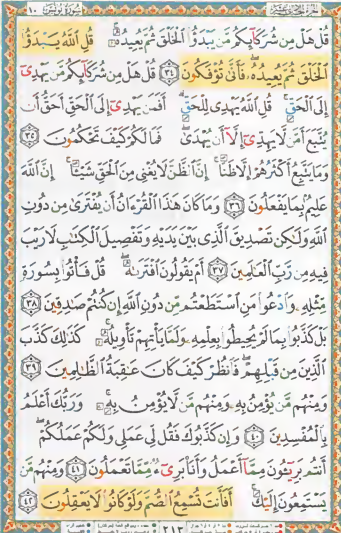 الجزء الحادي عشر ١٠ سورة يونس
قُلْ هَلْ مِن شُرَكَآئِكُم مَّن يَبْدَؤُا۟ ٱلْخَلْقَ ثُمَّ يُعِيدُهُۥ ۚ قُلِ ٱللَّهُ يَبْدَؤُا۟
ٱلْخَلْقَ ثُمَّ يُعِيدُهُۥ ۖ فَأَنَّىٰ تُؤْفَكُونَ ٣٤ قُلْ هَلْ مِن شُرَكَآئِكُم مَّن يَهْدِىٓ
إِلَى ٱلْحَقِّ ۚ قُلِ ٱللَّهُ يَهْدِى لِلْحَقِّ ۗ أَفَمَن يَهْدِىٓ إِلَى ٱلْحَقِّ أَحَقُّ أَن
يُتَّبَعَ أَمَّن لَّا يَهِدِّىٓ إِلَّآ أَن يُهْدَىٰ ۖ فَمَا لَكُمْ كَيْفَ تَحْكُمُونَ ٣٥
وَمَا يَتَّبِعُ أَكْثَرُهُمْ إِلَّا ظَنًّا ۚ إِنَّ ٱلظَّنَّ لَا يُغْنِى مِنَ ٱلْحَقِّ شَيْـًٔا ۚ إِنَّ ٱللَّهَ
عَلِيمٌۢ بِمَا يَفْعَلُونَ ٣٦ وَمَا كَانَ هَـٰذَا ٱلْقُرْءَانُ أَن يُفْتَرَىٰ مِن دُونِ
ٱللَّهِ وَلَـٰكِن تَصْدِيقَ ٱلَّذِى بَيْنَ يَدَيْهِ وَتَفْصِيلَ ٱلْكِتَـٰبِ لَا رَيْبَ
فِيهِ مِن رَّبِّ ٱلْعَـٰلَمِينَ ٣٧ أَمْ يَقُولُونَ ٱفْتَرَىٰهُ ۖ قُلْ فَأْتُوا۟ بِسُورَةٍ
مِّثْلِهِۦ وَٱدْعُوا۟ مَنِ ٱسْتَطَعْتُم مِّن دُونِ ٱللَّهِ إِن كُنتُمْ صَـٰدِقِينَ ٣٨
بَلْ كَذَّبُوا۟ بِمَا لَمْ يُحِيطُوا۟ بِعِلْمِهِۦ وَلَمَّا يَأْتِهِمْ تَأْوِيلُهُۥ ۚ كَذَٰلِكَ كَذَّبَ
ٱلَّذِينَ مِن قَبْلِهِمْ ۖ فَٱنظُرْ كَيْفَ كَانَ عَـٰقِبَةُ ٱلظَّـٰلِمِينَ ٣٩
وَمِنْهُم مَّن يُؤْمِنُ بِهِۦ وَمِنْهُم مَّن لَّا يُؤْمِنُ بِهِۦ ۚ وَرَبُّكَ أَعْلَمُ
بِٱلْمُفْسِدِينَ ٤٠ وَإِن كَذَّبُوكَ فَقُل لِّى عَمَلِى وَلَكُمْ عَمَلُكُمْ ۖ
أَنتُم بَرِيٓـُٔونَ مِمَّآ أَعْمَلُ وَأَنَا۠ بَرِىٓءٌ مِّمَّا تَعْمَلُونَ ٤١ وَمِنْهُم مَّن
يَسْتَمِعُونَ إِلَيْكَ ۚ أَفَأَنتَ تُسْمِعُ ٱلصُّمَّ وَلَوْ كَانُوا۟ لَا يَعْقِلُونَ ٤٢
٢١٣